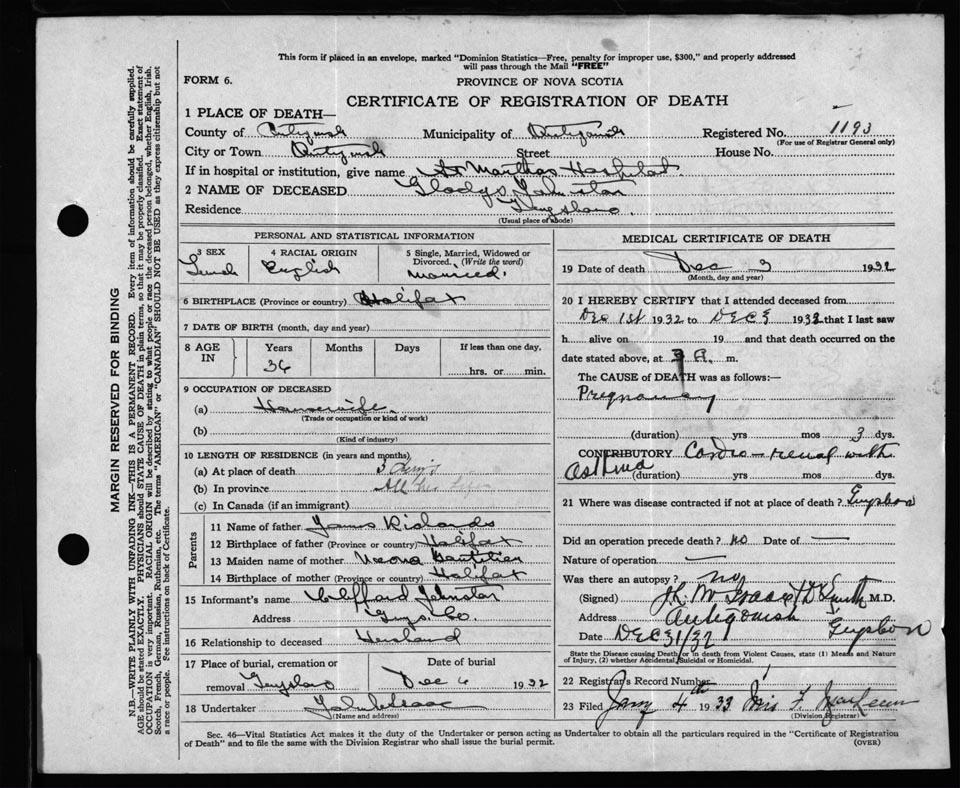 This form if placed in an envelope, marked "Dominion Statistics—Free, penalty for improper use, $300," and properly addressed
will pass through the Mail "FREE"
FORM 6.
PROVINCE OF NOVA SCOTIA
CERTIFICATE OF REGISTRATION OF DEATH
MARGIN RESERVED FOR BINDING
N.B.—WRITE PLAINLY WITH UNFADING INK—THIS IS A PERMANENT RECORD. Every item of information should be carefully supplied.
AGE should be stated EXACTLY. PHYSICIANS should STATE CAUSE OF DEATH in plain terms, so that it may be properly classified. Exact statement of
OCCUPATION is very important. RACIAL ORIGIN will be described by stating to what people or race the deceased person belonged, whether English, Irish,
Scotch, French, German, Russian, Ruthenian, etc. The terms "AMERICAN" or "CANADIAN" SHOULD NOT BE USED as they express citizenship but not
a race or people. See instructions on back of Certificate.
1 PLACE OF DEATH—
County of Antigonish Municipality of Antigonish Registered No. 1193
(For use of Registrar General only)
City or Town Antigonish Street House No.
If in hospital or institution, give name St Marthas Hospital
2 NAME OF DECEASED Gladys Johnston
Residence Guysboro.
(Usual place of abode)
PERSONAL AND STATISTICAL INFORMATION
3 SEX 4 RACIAL ORIGIN 5 Single, Married, Widowed or
Divorced. (Write the word)
Female English Married.
6 BIRTHPLACE (Province or country) Halifax
7 DATE OF BIRTH (month, day and year)
8 AGE IN Years Months Days If less than one day.
36 hrs. or min.
9 OCCUPATION OF DECEASED
(a) Housewife
(Trade or occupation or kind of work)
(b)
(Kind of industry)
10 LENGTH OF RESIDENCE (in years and months)
(a) At place of death 3 Days
(b) In province All her Life
(c) In Canada (if an immigrant)
Parents
11 Name of father James Richards
12 Birthplace of father (Province or country) Halifax
13 Maiden name of mother
14 Birthplace of mother (Province or country) Halifax
15 Informant's name Clifford Johnston
Address Guys. Co.
16 Relationship to deceased Husband
17 Place of burial, cremation or
removal Guysboro
Date of burial
Dec 6 1932
18 Undertaker
(Name and address)
MEDICAL CERTIFICATE OF DEATH
19 Date of death Dec 3 1932
(Month, day and year)
20 I HEREBY CERTIFY that I attended deceased from
Dec 1st 1932 to DEC 3 1932 that I last saw
h alive on 19 and that death occurred on the
date stated above, at 3 A. m.
The CAUSE of DEATH was as follows:—
Pregnancy
(duration) yrs mos 3 dys.
CONTRIBUTORY Cardio-renal with
Asthma (duration) yrs mos dys.
21 Where was disease contracted if not at place of death? Guysboro
Did an operation precede death? no Date of —
Nature of operation —
Was there an autopsy? no
(Signed) M.D.
Address Antigonish Guysboro
Date DEC 31/32
State the Disease causing Death, or in death from Violent Causes, state (1) Means and Nature
of Injury, (2) whether Accidental, Suicidal or Homicidal.
22 Registrar's Record Number
23 Filed Jany 4th 1933
(Division Registrar)
Sec. 46—Vital Statistics Act makes it the duty of the Undertaker or person acting as Undertaker to obtain all the particulars required in the "Certificate of Registration
of Death" and to file the same with the Division Registrar who shall issue the burial permit. (OVER)